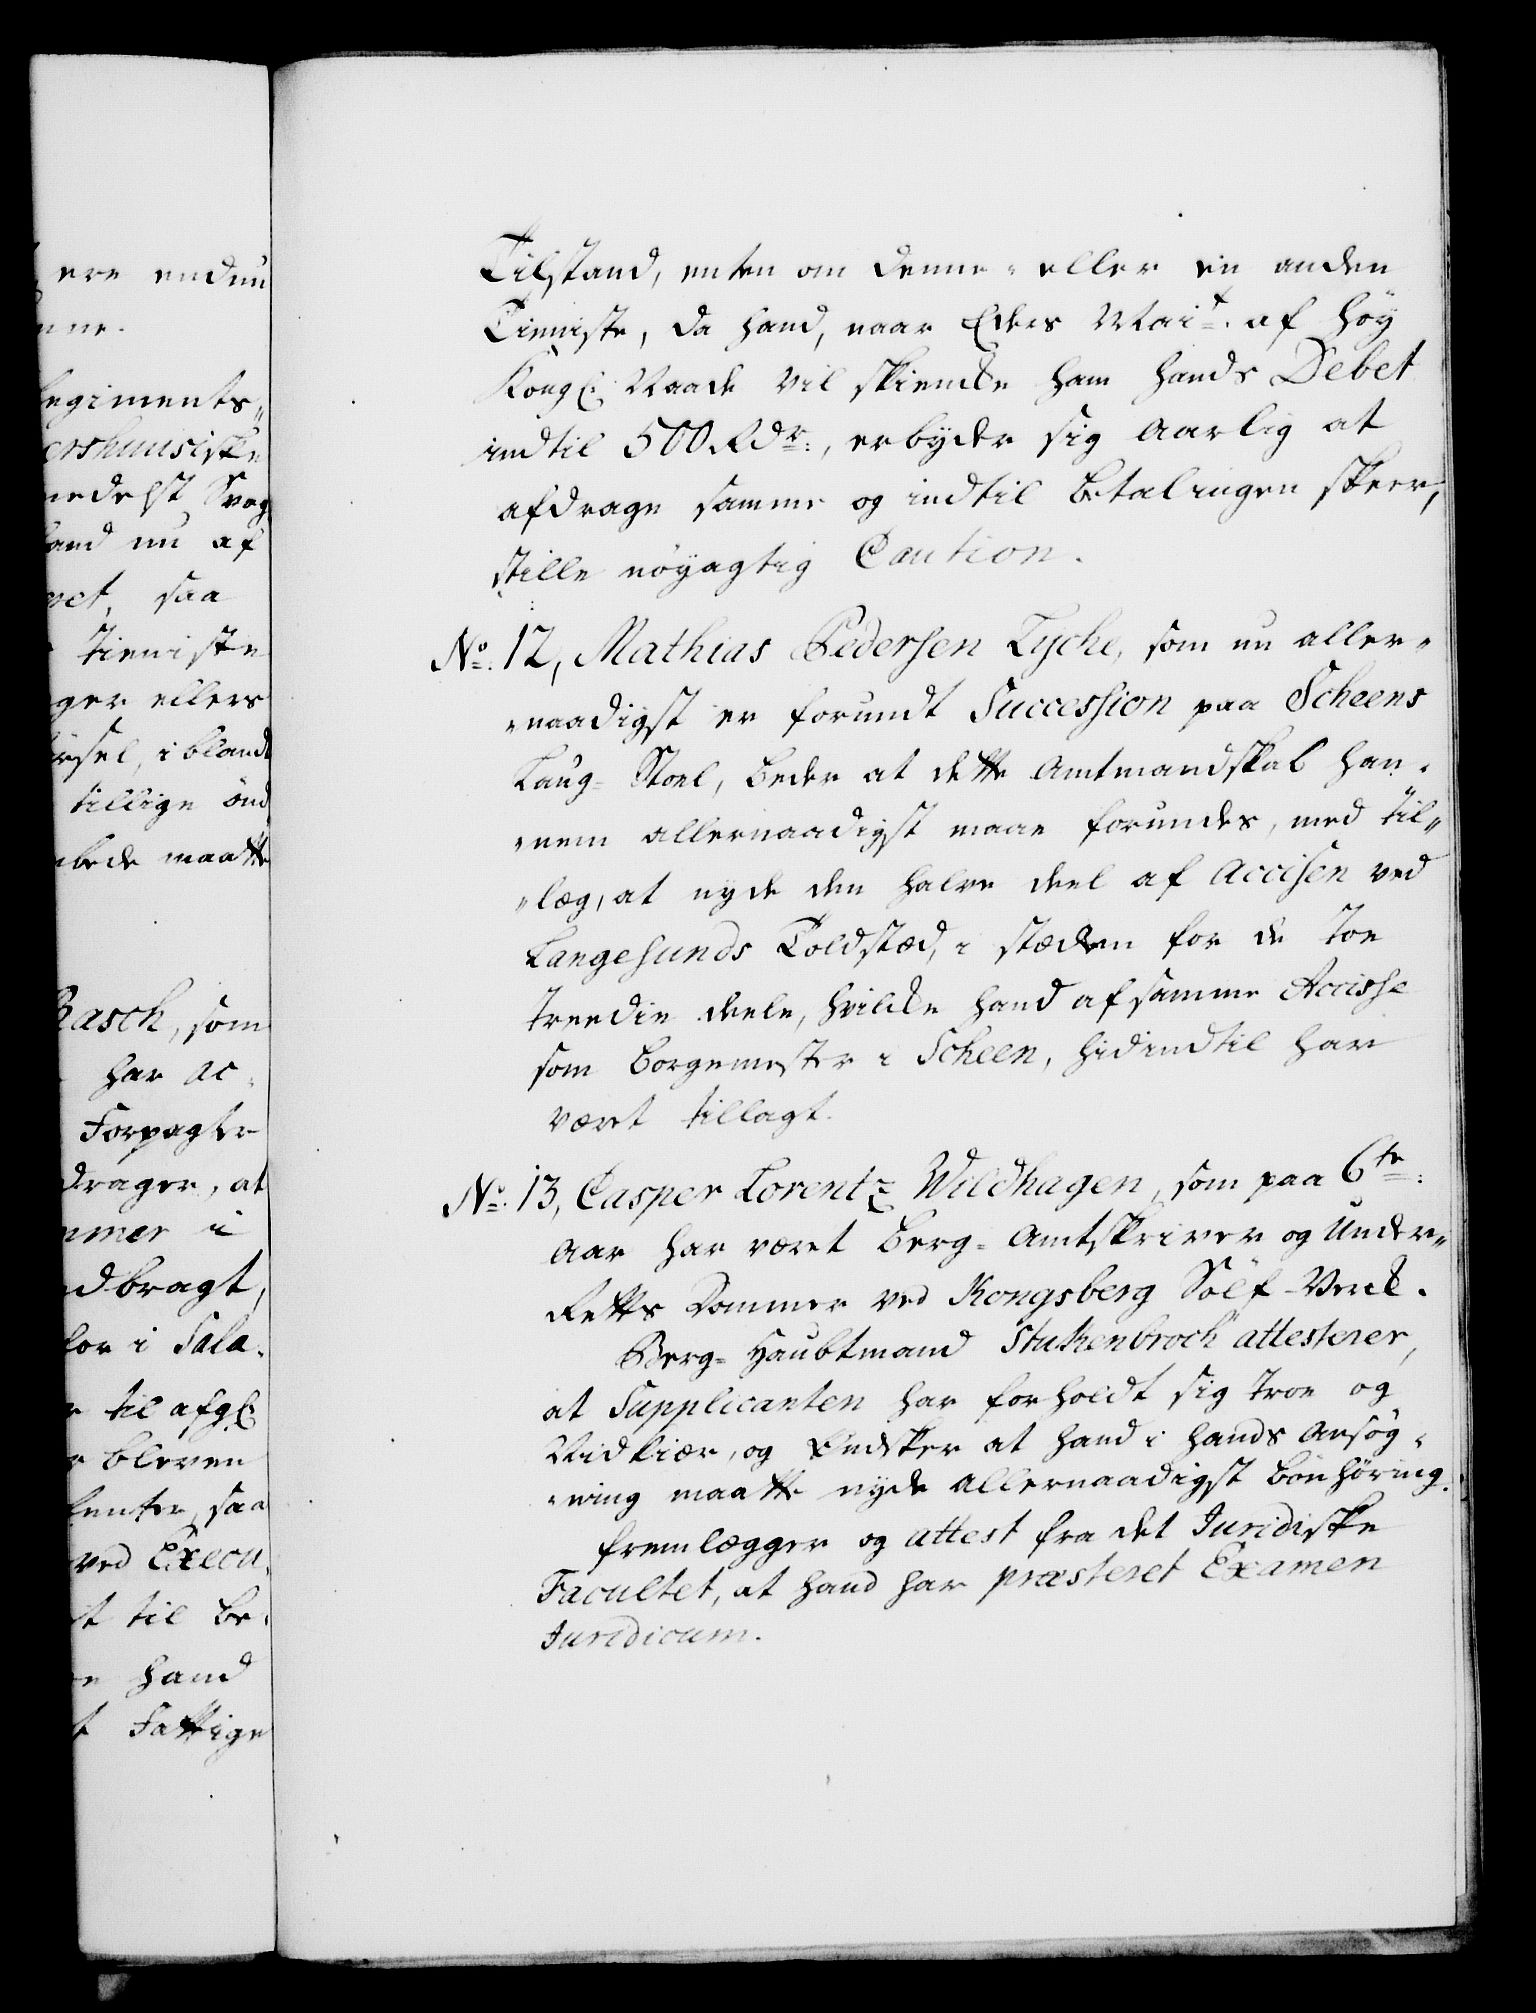 ere endnu
nne.
egiments„
ershuusiske
medelst Svag
hand nu af
vet, saa
tieniste
ger ellers
rsel, iblandt
tillige ønd
bede maatte
Rasch, som
har ac„
Forpagter
drager, at
mmer i
dbragt,
for i Sala„
til afgl:
bleven
lenter, saa
ved Execu„
t til be„
hand
t Fattige
Tilstand, enten om denne- eller een anden
Tieniste, da hand, naar Eders Mait. af høy
Kongl: Naade vil skiencke ham hands Debet
indtil 500 Rdr:, erbyder sig aarlig at
afdrage samme og indtil Betalingen skeer,
stille nøyagtig Caution.
No. 12, Mathias Pedersen Tyche, som nu aller„
„naadigst er forundt Succession paa Scheens
Laug-Stoel, beder at dette Amtmandskab han„
„nem allernaadigst maae forundes, med til„
„læg, at nyde den halve deel af Accisen ved
Langesunds Toldsted, i stæden for de toe
treedie deele, hvilcke hand af samme Accisse
som borgemester i Scheen, hidindtil har
været tillagt.
No. 13, Casper Lorentz Wildhagen, som paa 6te:
aar har været Berg-Amtskriver og Under„
Retts Dommer ved Kongsberg Sölf-Verck.
Berg-Haubtmand Stukenbroch attesterer,
at Supplicanten har forholdt sig troe og
Nidkiær, og Ønsker at hand i hands Ansøg„
„ning maatte nyde allernaadigst bønhøring.
fremlægger og attest fra det Juridiske
Facultet, at hand har præsteret Examen
Juridicum.